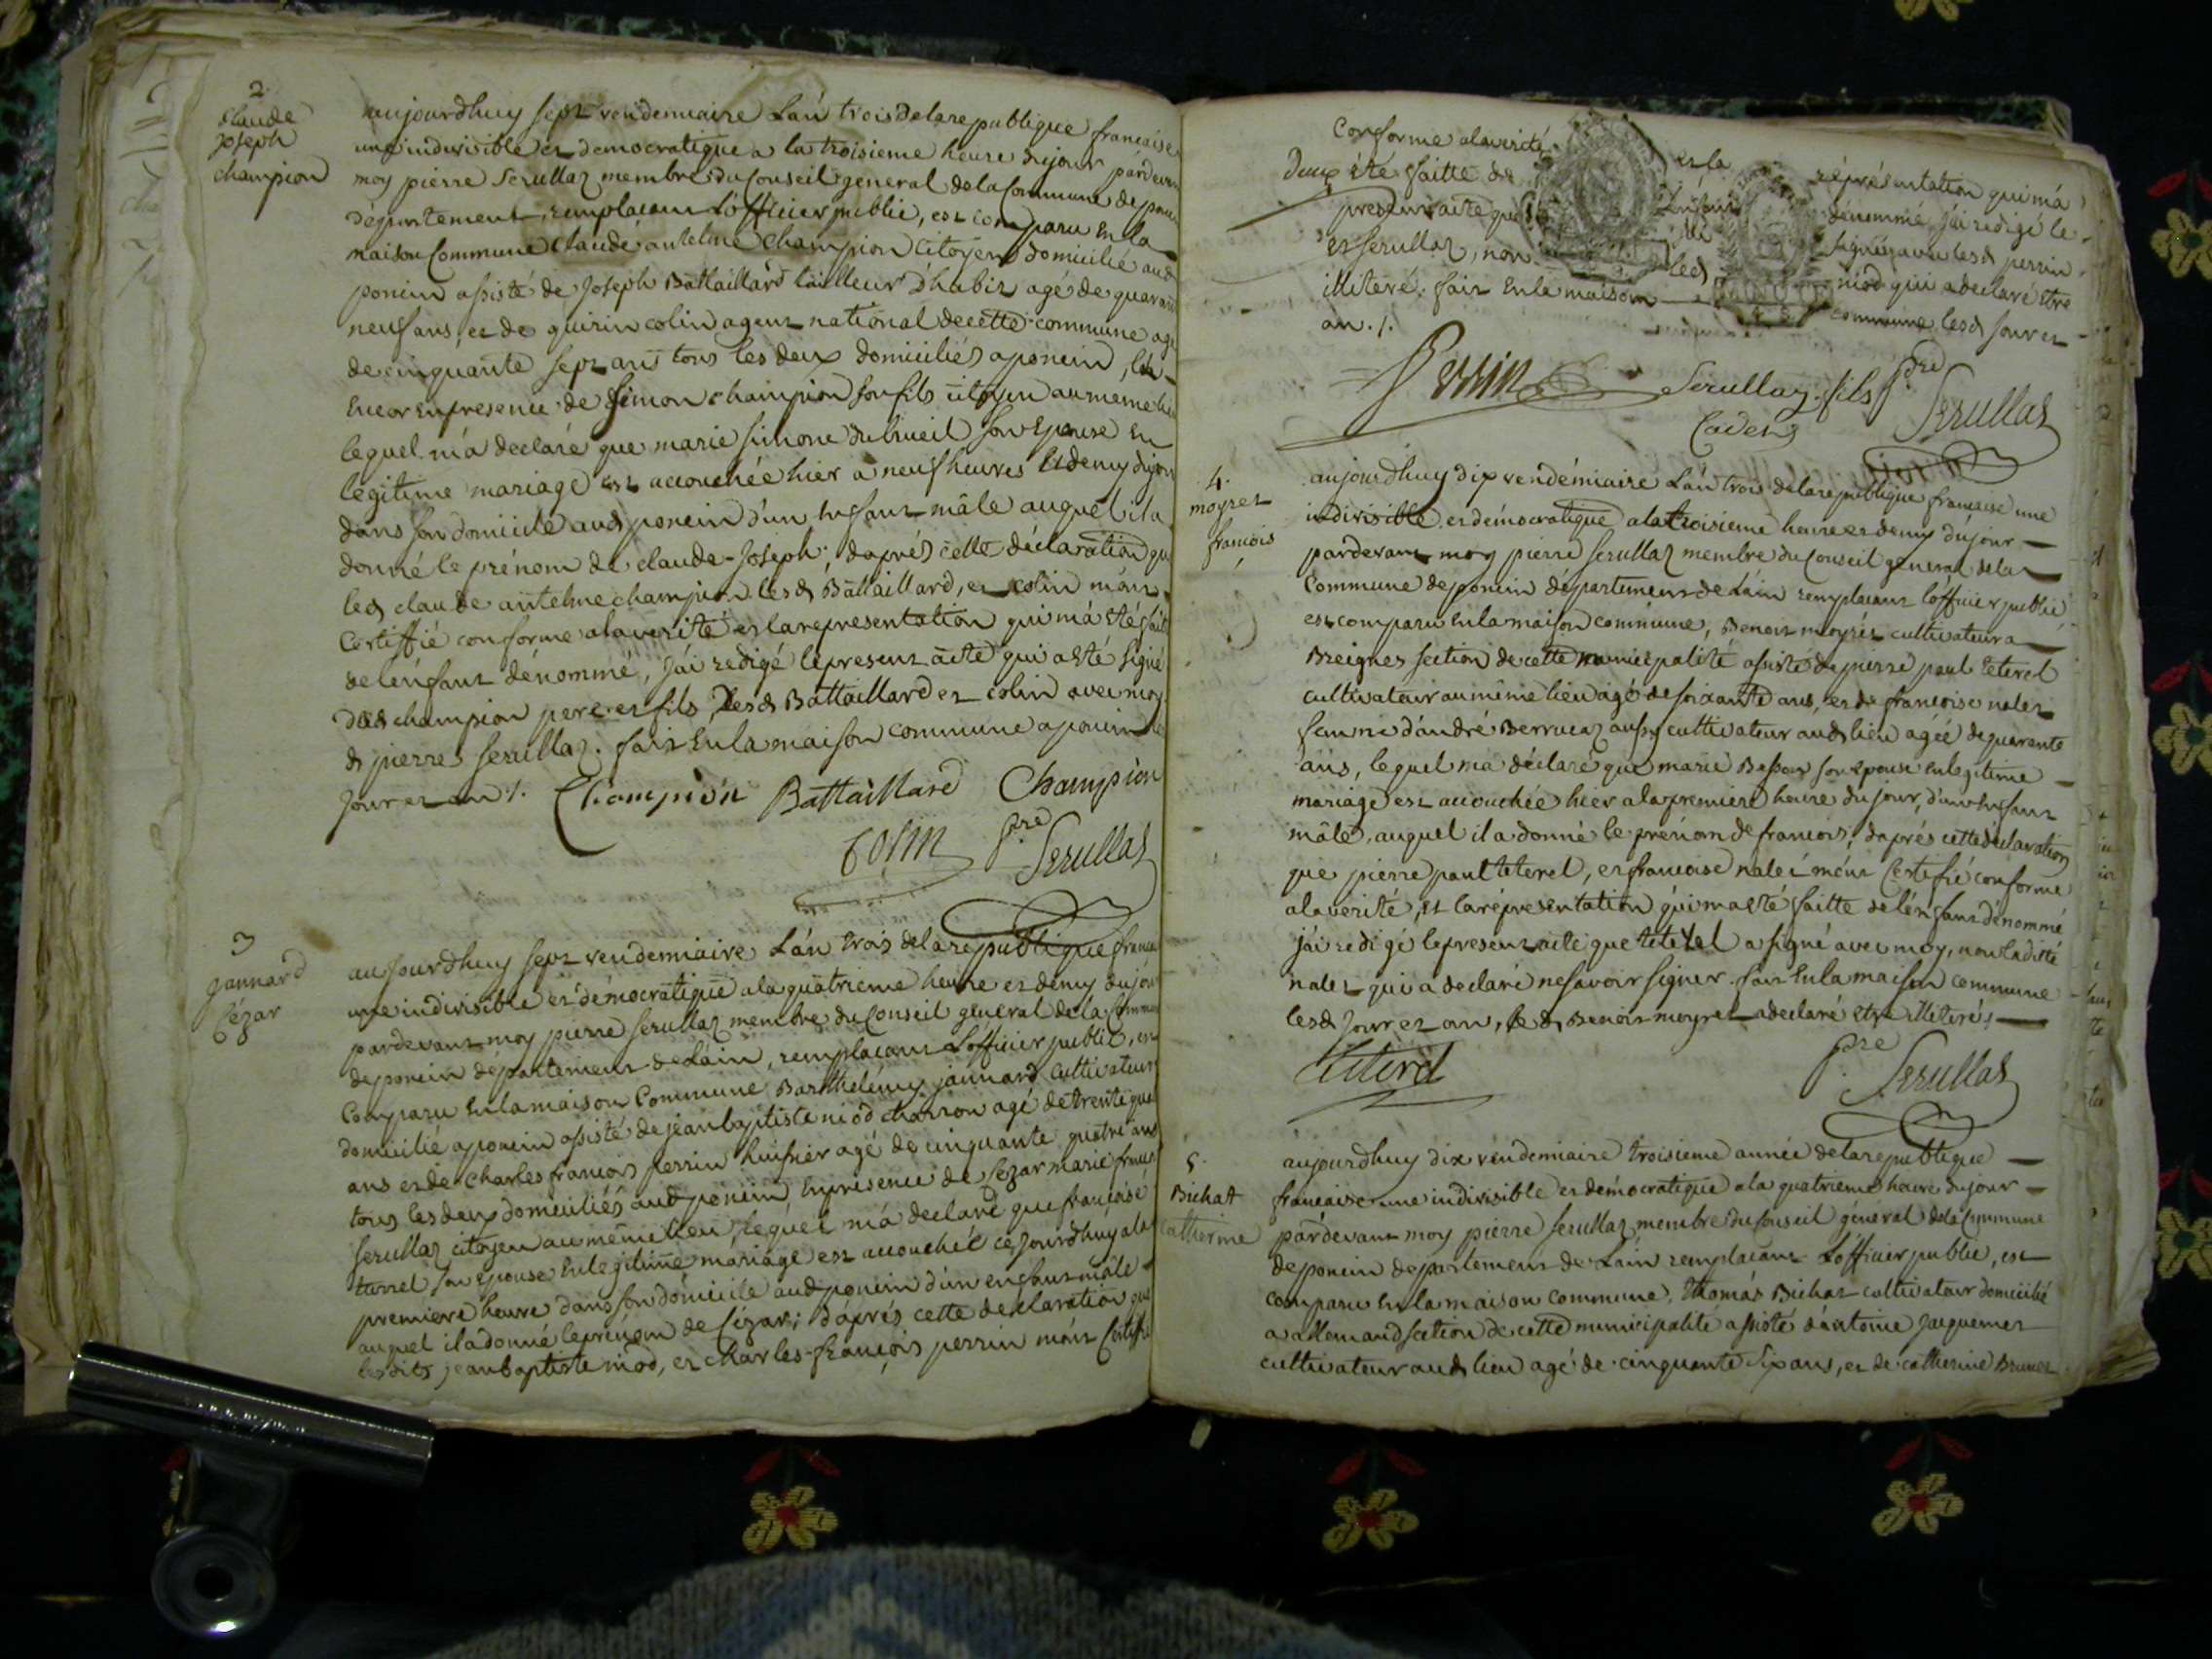 2
Claude
Joseph
champion
aujourdhuy sept vendemiaire Lán trois delarepublique francaise
une indivisible et democratique a la troisieme heure dujour pardevant
moy pierre Serullaz membre du Conseil general dela Commune de poncin
département remplacant Lófficier public, est comparu en la
maison Commune Claude antelme Champion Citoyen domicilié aud
poncin assisté de Joseph Battaillard tailleur d'habit agé de quarante
neuf ans, et de quirin colin agent national de cette commune agé
de cinquante sept ans tous les deux domiciliés a poncin,
encor en presence de Simon champion son fils citoyen au meme lieu
lequel má declaré que marie simone dubrueil son Epouse en
legitime mariage est accouchée hier a neuf heures et demy dujour
dans son domicile aud poncin d'un enfant mâle auquel il a
donné le prénom de claude-Joseph; daprés cette déclaration que
led claude antelme champion lesd Battaillard, et colin mónt
Certiffié conforme alaverité et larepresentation qui má eté faite
delénfant dénommé, Jái redigé lepresent acte qui a eté signé
desd champion pere et fils, desd Battaillard et colin avec moy
d pierre Serullaz. fait en la maison commune a poncin le
Jour et an ./. Champion Battaillard Champion
Colin Pre Serullaz
3
Jannard
Cézar
aujourdhuy sept vendemiaire Lán trois dela republique francaise
une indivisible et démocratique a la quatrieme heure et demy dujour
pardevant moy pierre Serullaz membre du Conseil general dela Commune
de poncin département de Láin, remplacant Lófficier public, est
Comparu en la maison Commune Barthelémy jannard cultivateur
domicilié a poncin assisté de jéan baptiste niod charron agé de trente quatre
ans et de Charles francois perrin huissier agé de cinquante quatre ans
tous les deux domiciliés aud poncin en présence de Cezar marie francois
Serullaz citoyen au mémé lieu, lequel má declaré que francoise
turrel son epouse en legitime mariage est accouchée cejourdhuy ala
premiere heure dans son domicile aud poncin d'un enfant mâle
auquel il a donné le prénom de Cézar; d'áprés cette declaration que
lesdits jean baptiste niod, et charles-françois perrin mónt Certiffié
Conforme alaverité et la réprésentation qui má
Deux eté faitte de Lénfant dénommé jái redigé le
present acte que signé avec lesd perrin
et Serullaz, non led niod qui a declaré etre
illiteré. fait en la maison commune lesd jour et
an ./.
Perrin Serullaz fils Pre Serullaz
Cadet
4.
moyret
francois
aujourdhuy dix vendémiaire Lán trois delarepublique francaise une
indivisible et démocratique ala troisieme heure et demy dujour
pardevant moy pierre Serullaz membre du Conseil general dela
Commune de poncin département de Láin remplacant lófficier public,
est comparu en la maison commune, Benoit moyret cultivateur a
Breignes section de cette municipalité assisté de pierre paul teterel
cultivateur au même lieu agé de soixante ans, et de francoise nalet
femme d'andré Berrucaz aussy cultivateur aud lieu agéé de quarente
ans, lequel ma déclaré que marie Besson son epouse en legitime
mariage est accouchée hier ala premiere heure du jour, d'un enfant
mâle, auquel il a donné le prénom de francois, daprés cette declaration
que pierre paul teterel, et francoise nalet mónt Certifié conforme
alaverité, et la réprésentation qui ma eté faitte delénfant dénommé
jái redigé lepresent acte que teterel a signé avec moy, non laditte
nalet qui a declaré ne savoir signer. fait en la maison commune
lesd Jour et an, led Benoit moyret a declaré etre illiteré.
teterel Pre Serullaz
5.
Bichat
Catherine
aujourdhuy dix vendemiaire troisieme année delarepublique
francaise une indivisible et démocratique ala quatrieme heure dujour
pardevant moy pierre Serullaz membre du Conseil géneral dela Commune
de poncin departement de Láin remplacant Lófficier public, est
comparu en la maison commune, thomás Bichat cultivateur domicilié
a allemand section de cette municipalité assisté d'antoine Jaquemet
cultivateur aud lieu agé de cinquante six ans, et de catherine Brunet